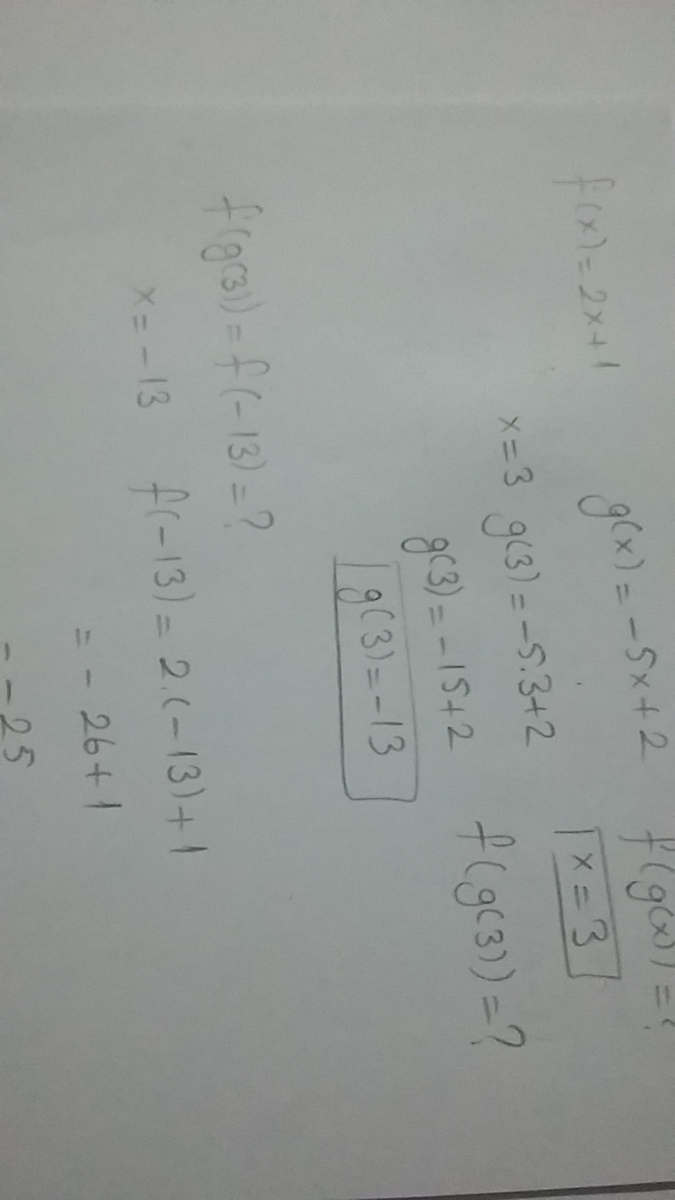 f(x)=2x+1 g(x)=-5x+2 f(g(x))=?
x=3 g(3)=-5.3+2 x=3
g(3)=-15+2 f(g(3))=?
g(3)=-13
f(g(3))=f(-13)=?
x=-13 f(-13)=2.(-13)+1
=-26+1
=-25